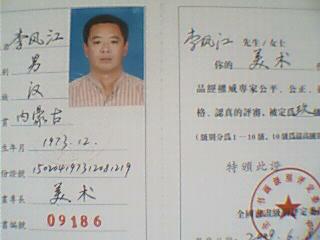 李风江
别 男
汉
贯 内蒙古
生年月 1973.12.
份證號 150204197312081219
書專長 美术
書編號 09186
李风江 先生/女士
你的 美术
品經權威專家公平、公正、
格、認真的評審，被定爲玖
(級別分爲1-10級，10級爲最高
特頒此證